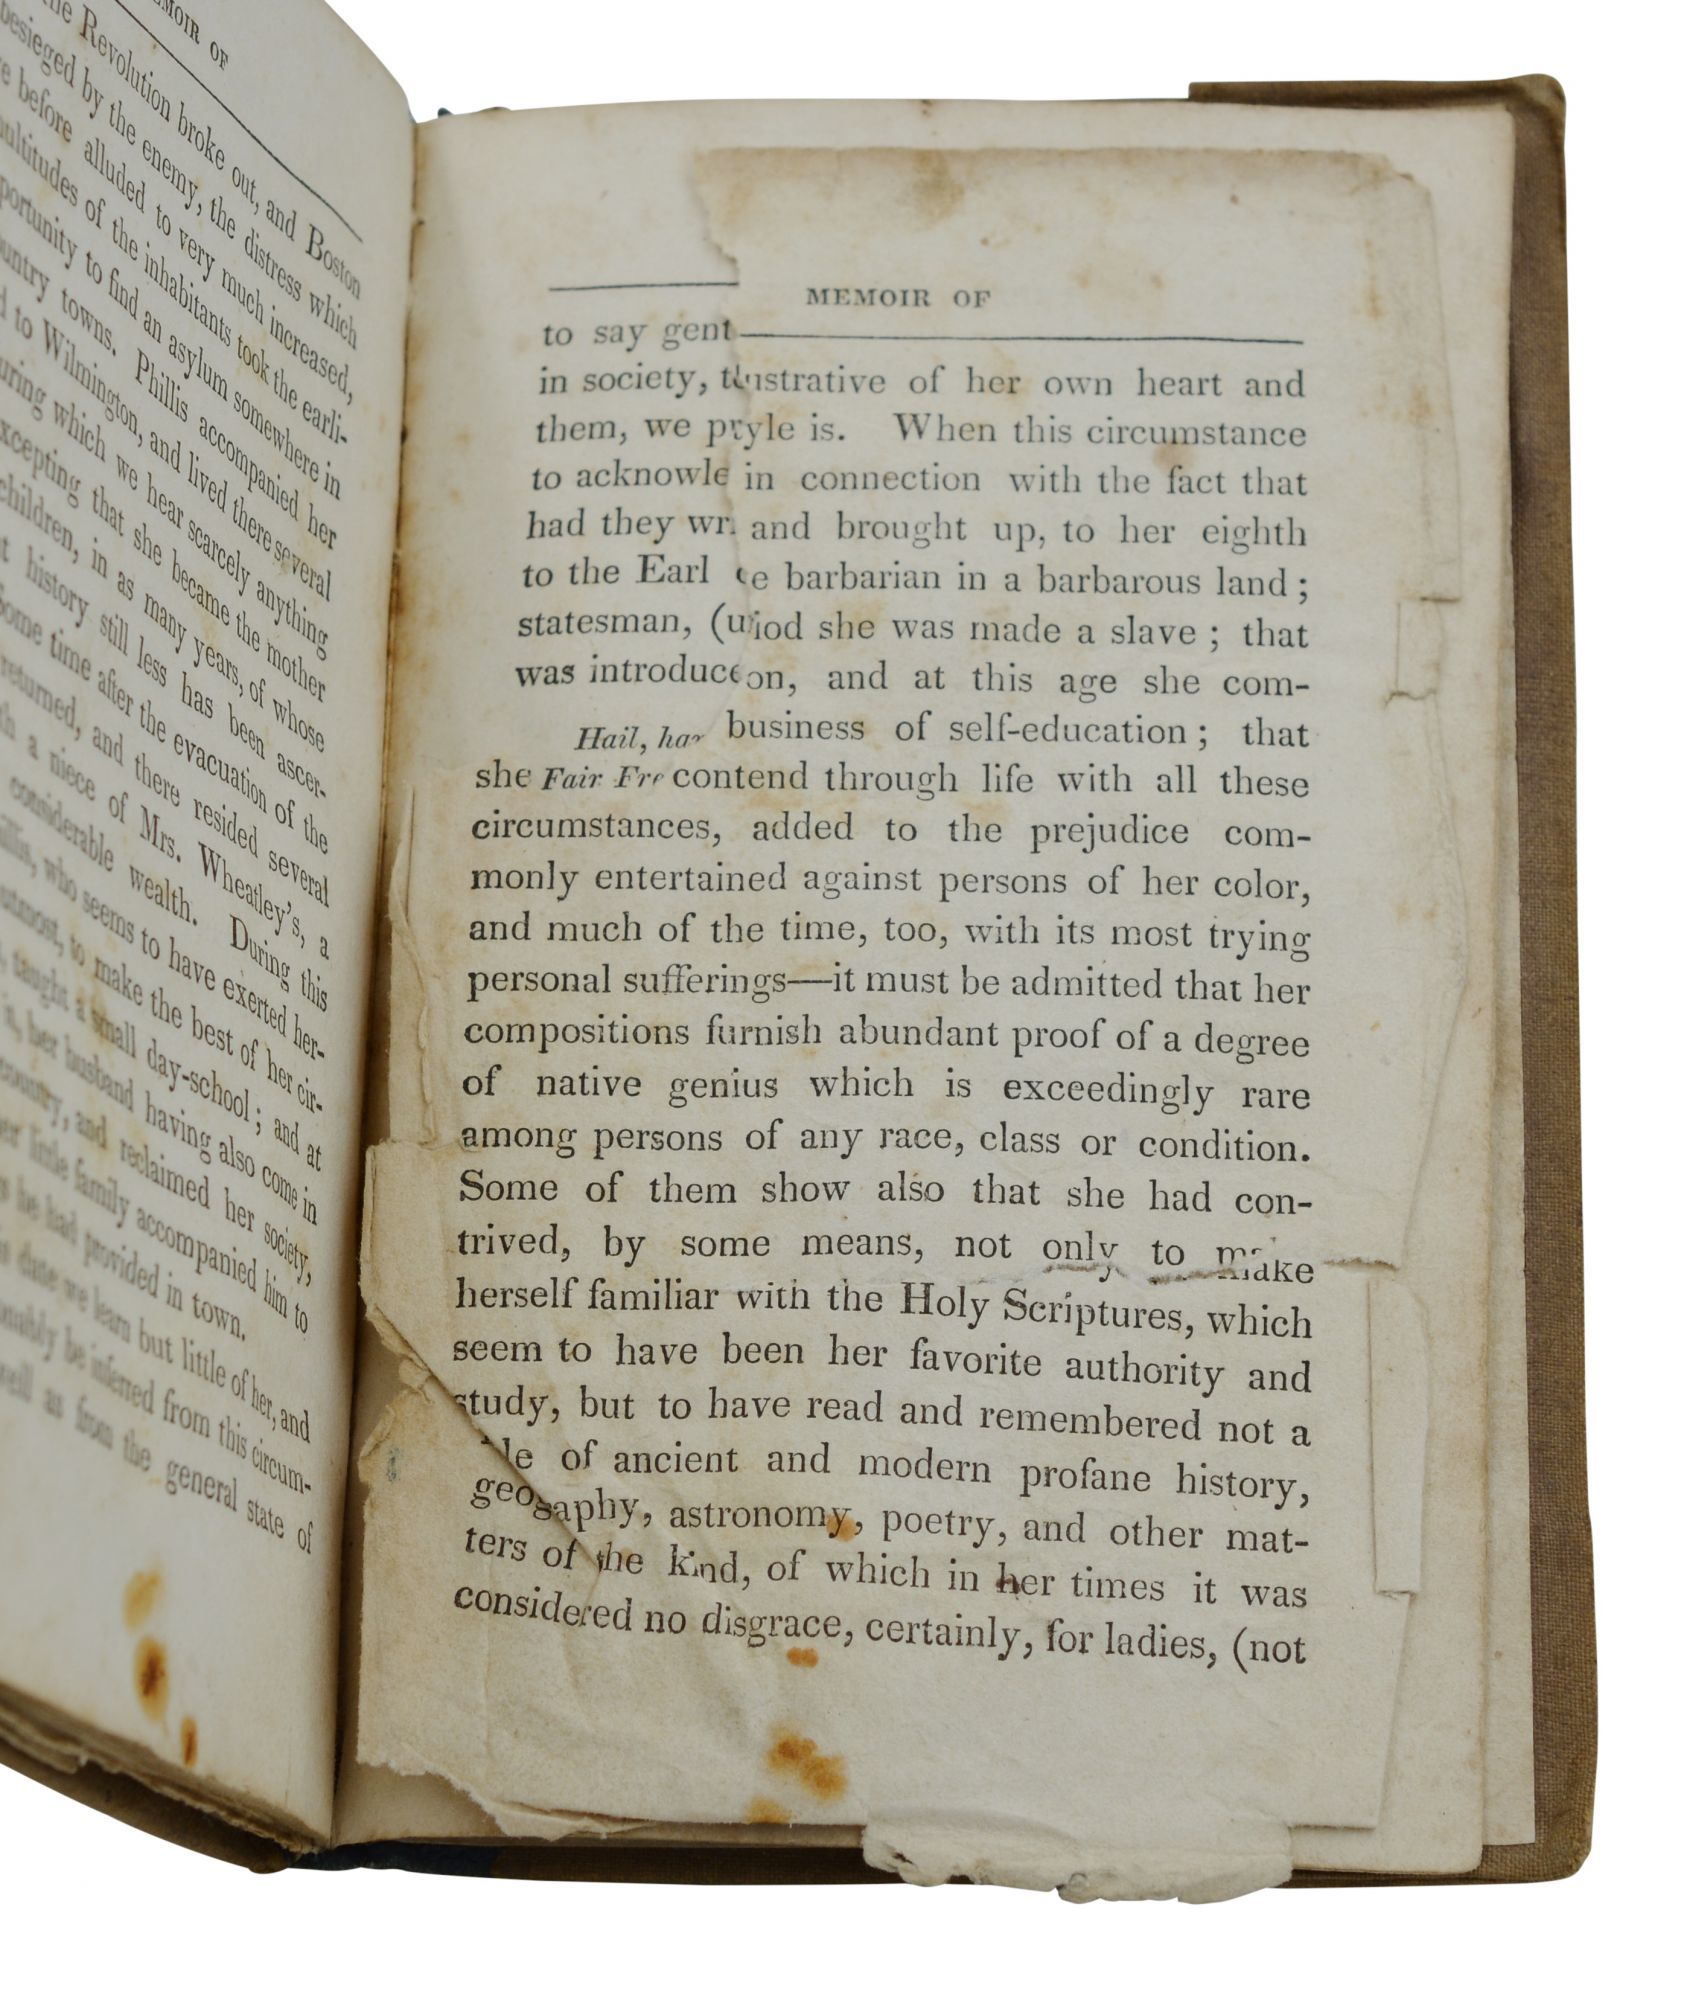 MEMOIR OF
the Revolution broke out, and Boston
besieged by the enemy, the distress which
before alluded to very much increased,
multitudes of the inhabitants took the earli-
portunity to find an asylum somewhere in
country towns. Phillis accompanied her
to Wilmington, and lived there several
during which we hear scarcely anything
excepting that she became the mother
children, in as many years, of whose
history still less has been ascer-
Some time after the evacuation of the
returned, and there resided several
a niece of Mrs. Wheatley's, a
considerable wealth. During this
who seems to have exerted her-
utmost, to make the best of her cir-
taught a small day-school; and at
her husband having also come in
country, and reclaimed her society,
her little family accompanied him to
he had provided in town.
date we learn but little of her, and
be inferred from this circum-
well as from the general state of
MEMOIR OF
to say gent
in society, t lustrative of her own heart and
them, we p tyle is. When this circumstance
to acknowle in connection with the fact that
had they wr and brought up, to her eighth
to the Earl e barbarian in a barbarous land;
statesman, (u iod she was made a slave; that
was introduce on, and at this age she com-
Hail, ha business of self-education; that
she Fair Fre contend through life with all these
circumstances, added to the prejudice com-
monly entertained against persons of her color,
and much of the time, too, with its most trying
personal sufferings—it must be admitted that her
compositions furnish abundant proof of a degree
of native genius which is exceedingly rare
among persons of any race, class or condition.
Some of them show also that she had con-
trived, by some means, not only to make
herself familiar with the Holy Scriptures, which
seem to have been her favorite authority and
study, but to have read and remembered not a
of ancient and modern profane history,
geography, astronomy, poetry, and other mat-
ters of the kind, of which in her times it was
considered no disgrace, certainly, for ladies, (not